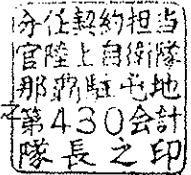 分任契約担当
官陸上自衛隊
那覇駐屯地
第430会計
隊長之印
之